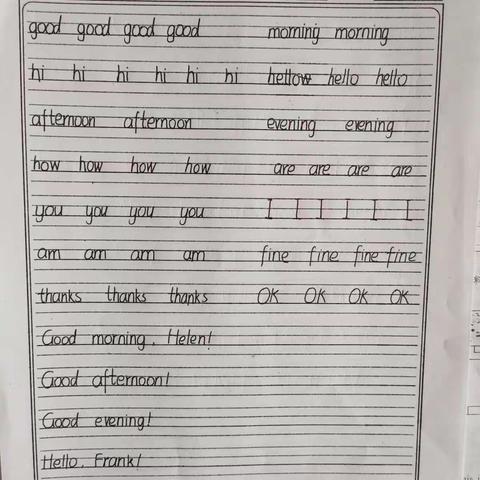 good good good good morning morning
hi hi hi hi hi hi hellow hello hello
afternoon afternoon evening evening
how how how how are are are are
you you you you I I I I I I
am am am am fine fine fine fine
thanks thanks thanks OK OK OK OK
Good morning, Helen!
Good afternoon!
Good evening!
Hello, Frank!